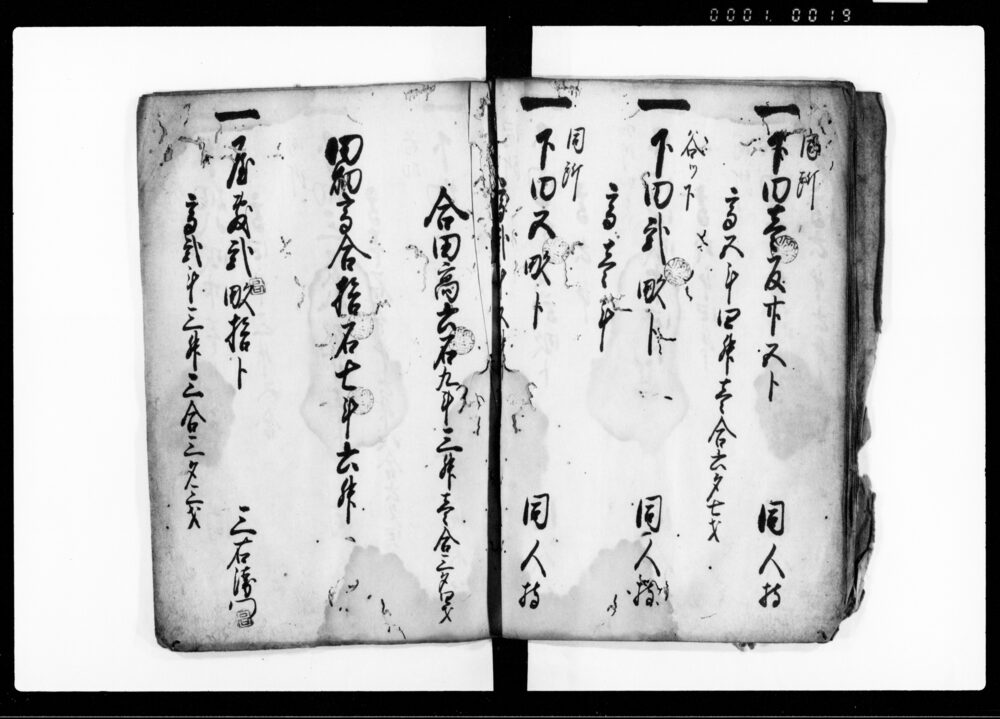 0001. 0019
同所
一下田壱反廿五卜
同人持
高五斗四升壱合六夕七才
谷ツ下
一下田弐畝卜
同人持
高壱斗
同所
一下田五畝卜
同人持
合田高六石九斗三升壱合三夕四才
田畑高合拾石七斗六升
一屋敷弐畝拾卜
三右衛門
高弐斗三升三合三夕三才